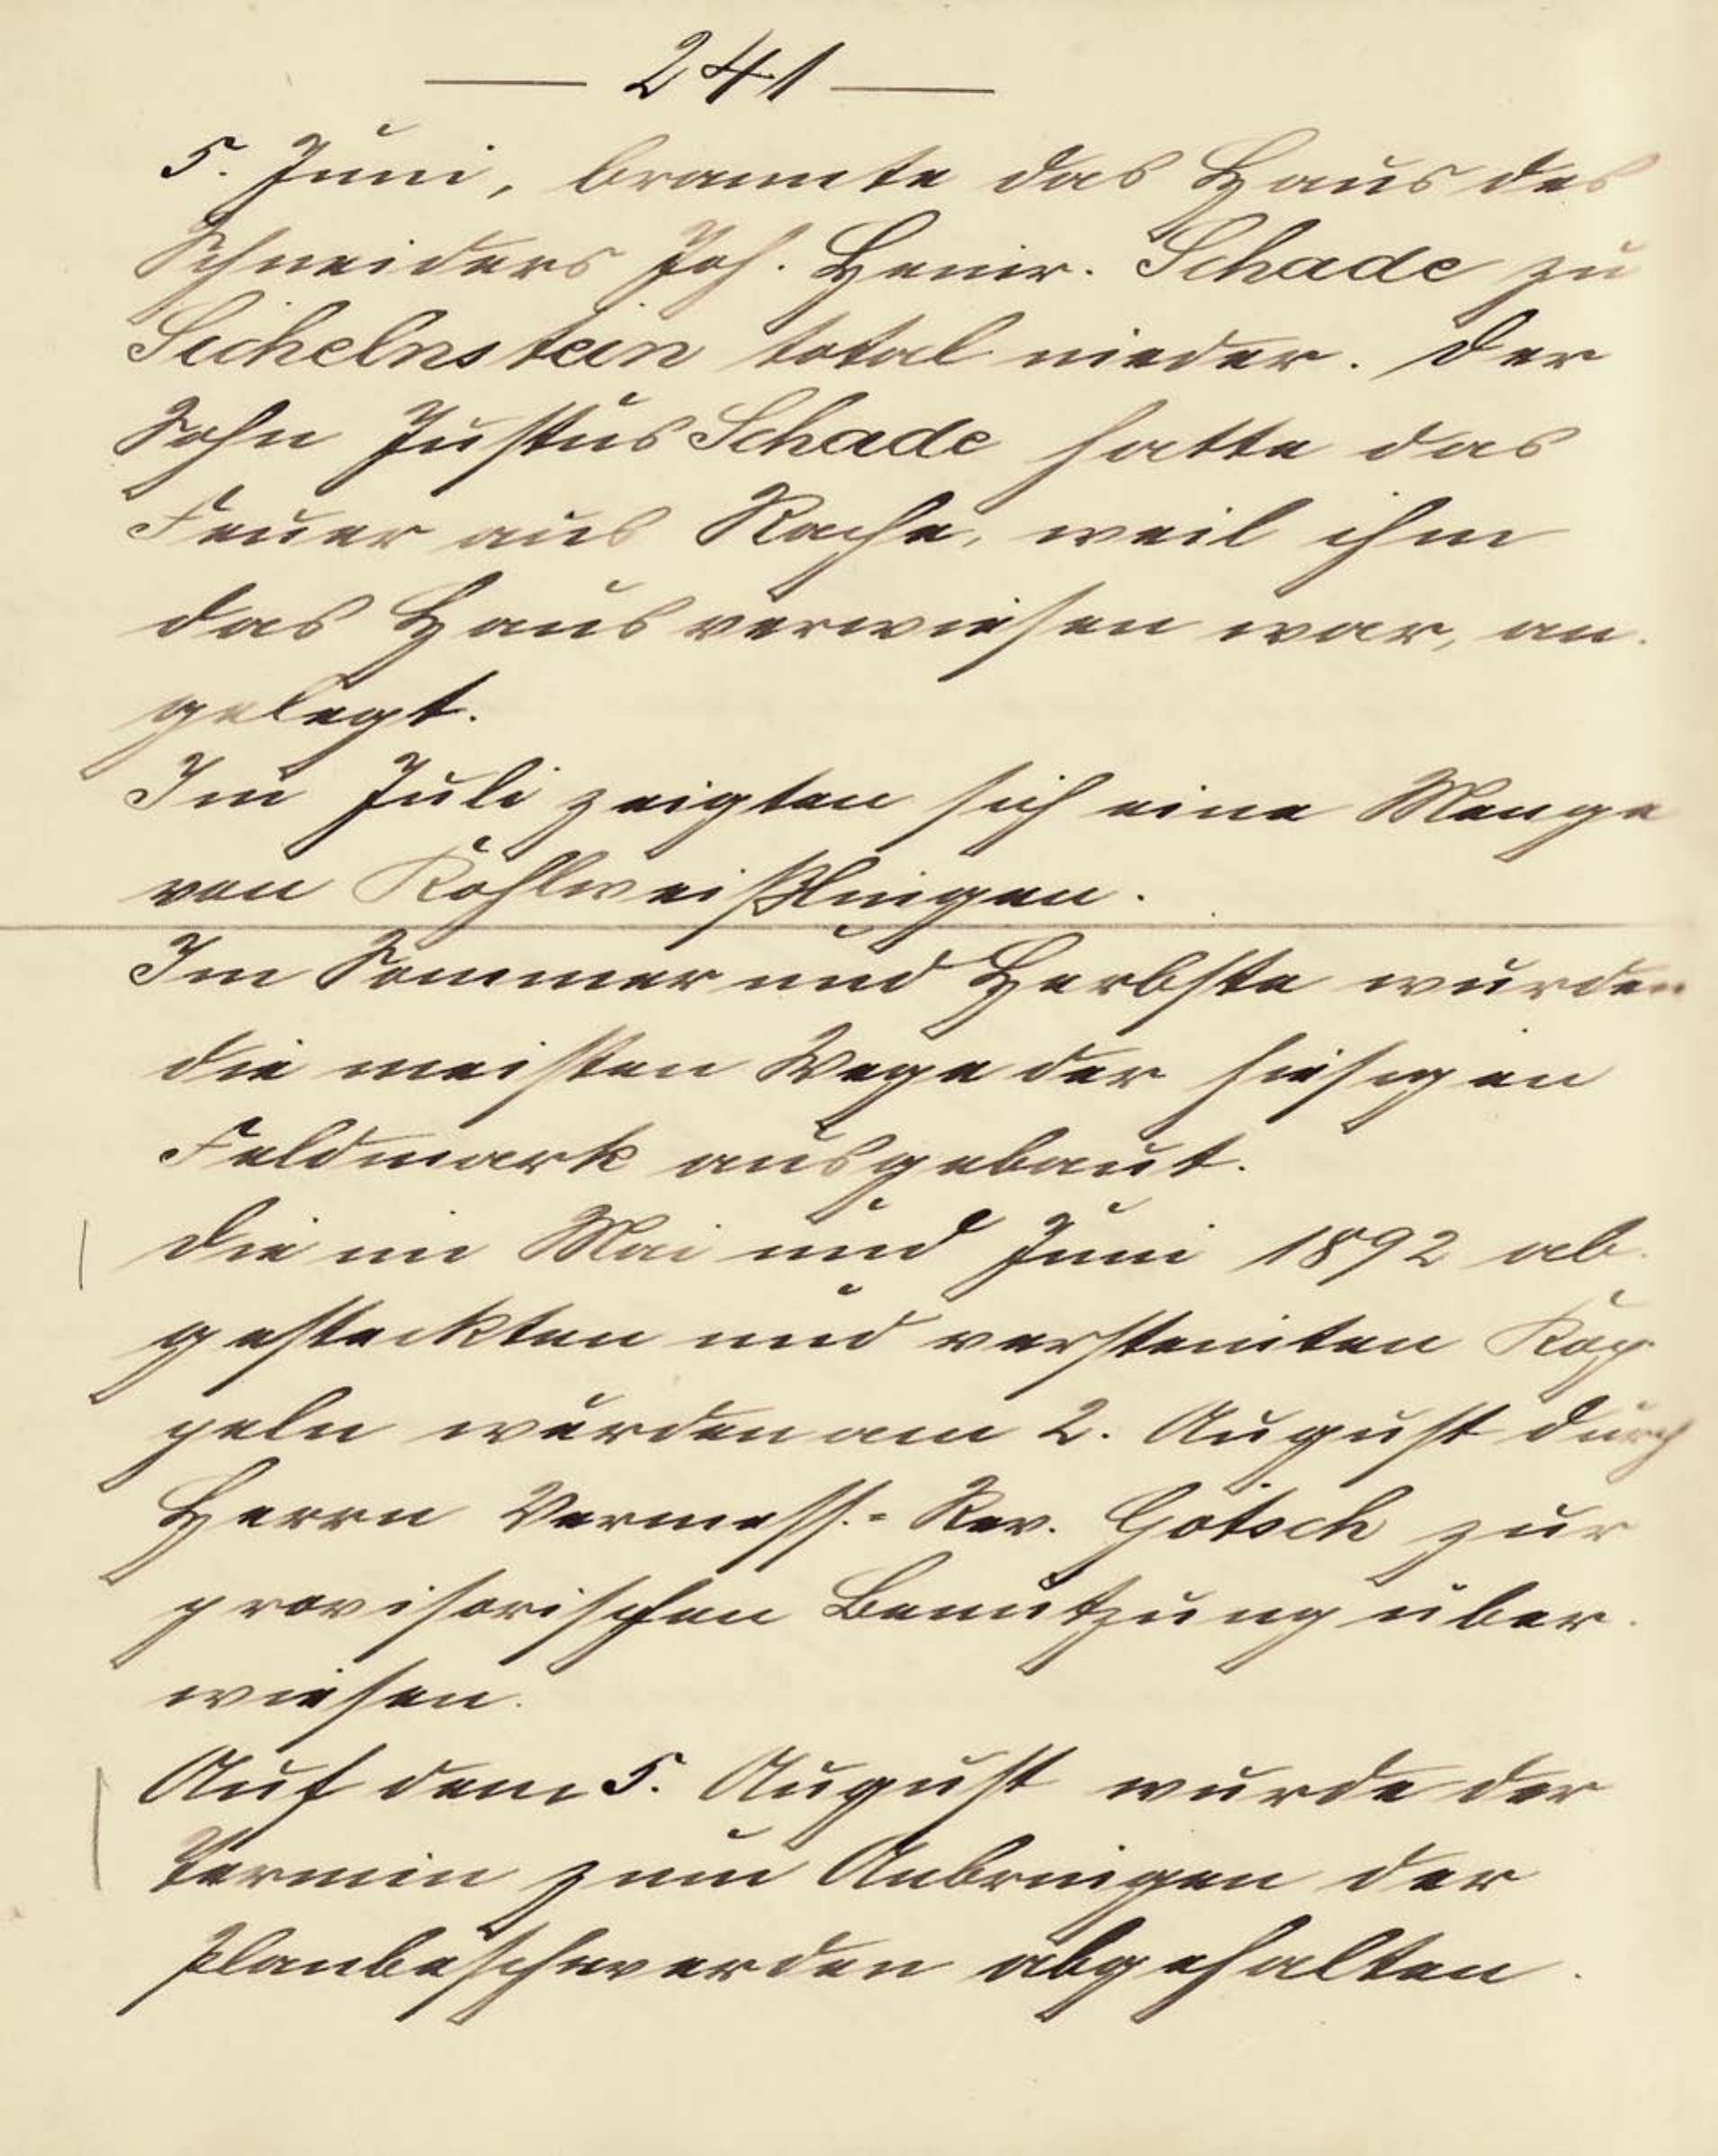 — 241 —
5. Juni, brannte das Haus des
Schneiders Joh. Heinr. Schade zu
Sichelnstein total nieder. Der
Sohn Justus Schade hatte das
Feuer aus Rache, weil ihm
das Haus verwiesen war, an-
gelegt.
Im Juli zeigten sich eine Menge
von Kohlweißlingen.
Im Sommer und Herbste wurden
die meisten Wege der hiesigen
Feldmark ausgebaut.
Die im Mai und Juni 1892 ab-
gesteckten und versteinten Kop-
peln wurden am 2. August durch
Herrn Vermess.-Rev. Götsch zur
provisorischen Benutzung über-
wiesen.
Auf dem 5. August wurde der
Termin zum Anbringen der
Planbeschwerden abgehalten.